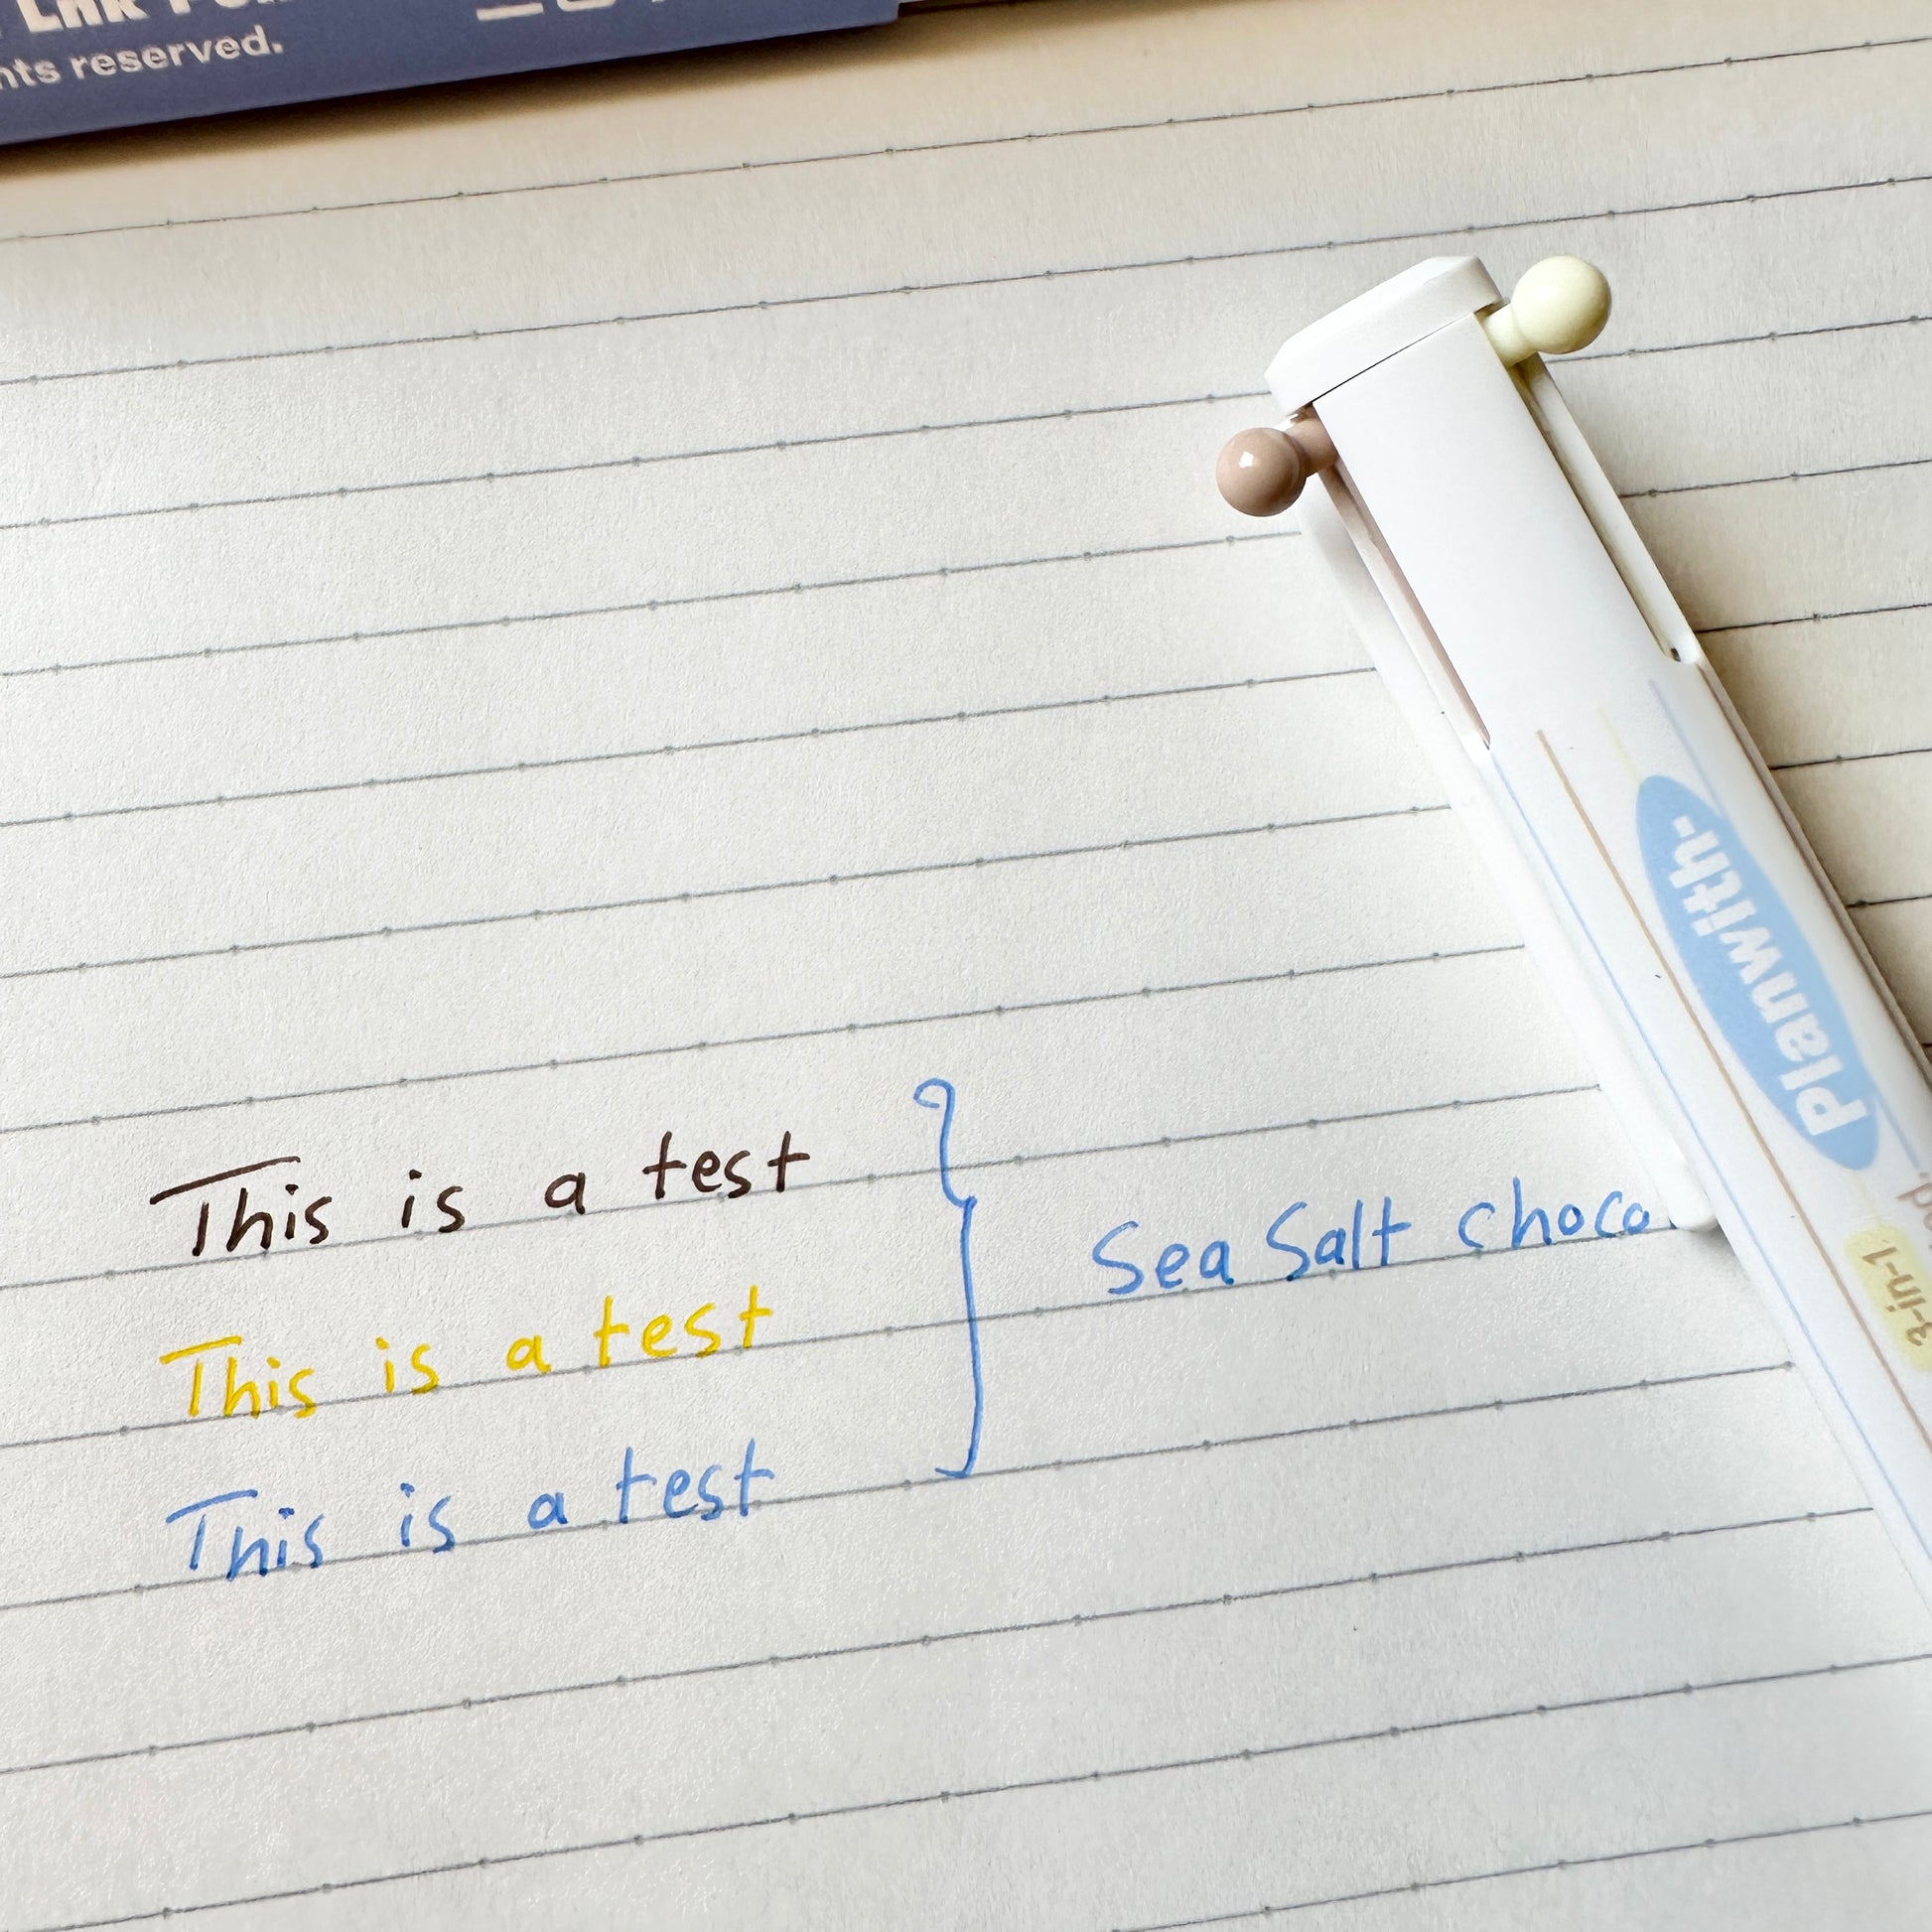 nts reserved.
This is a test
This is a test
This is a test
Sea Salt choco
Planwith-
3-in-1